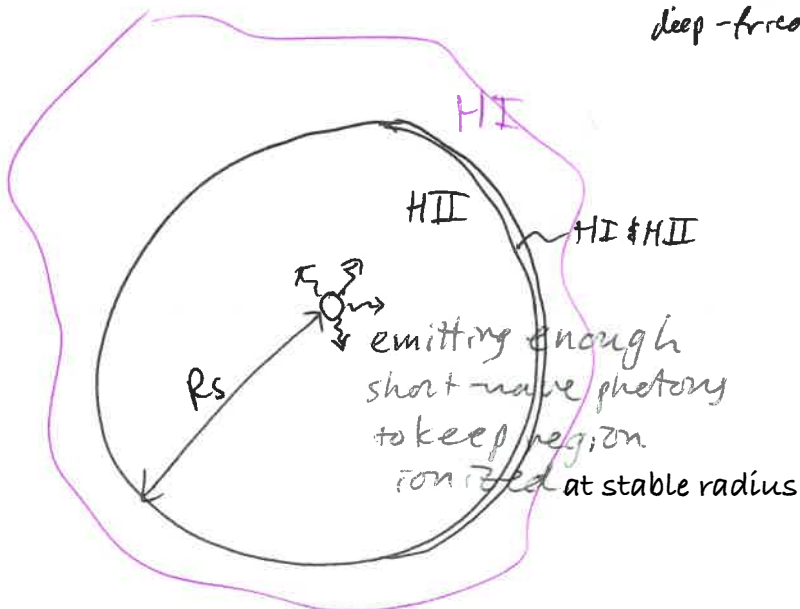 deep-fried
HI
HII
HI & HII
emitting enough
Rs
short-wave photons
to keep region
ionized at stable radius